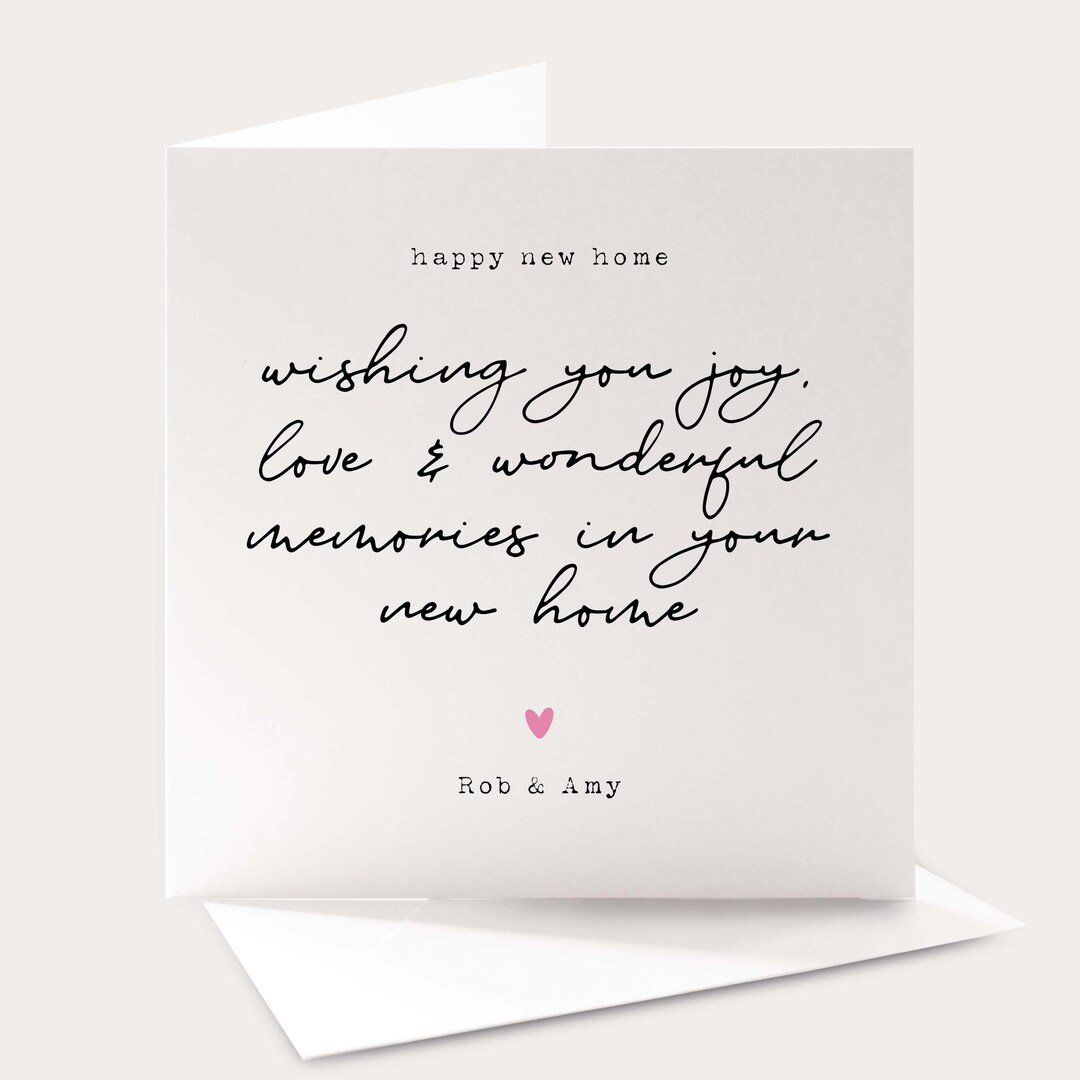 happy new home
wishing you joy,
love & wonderful
memories in your
new home
Rob & Amy